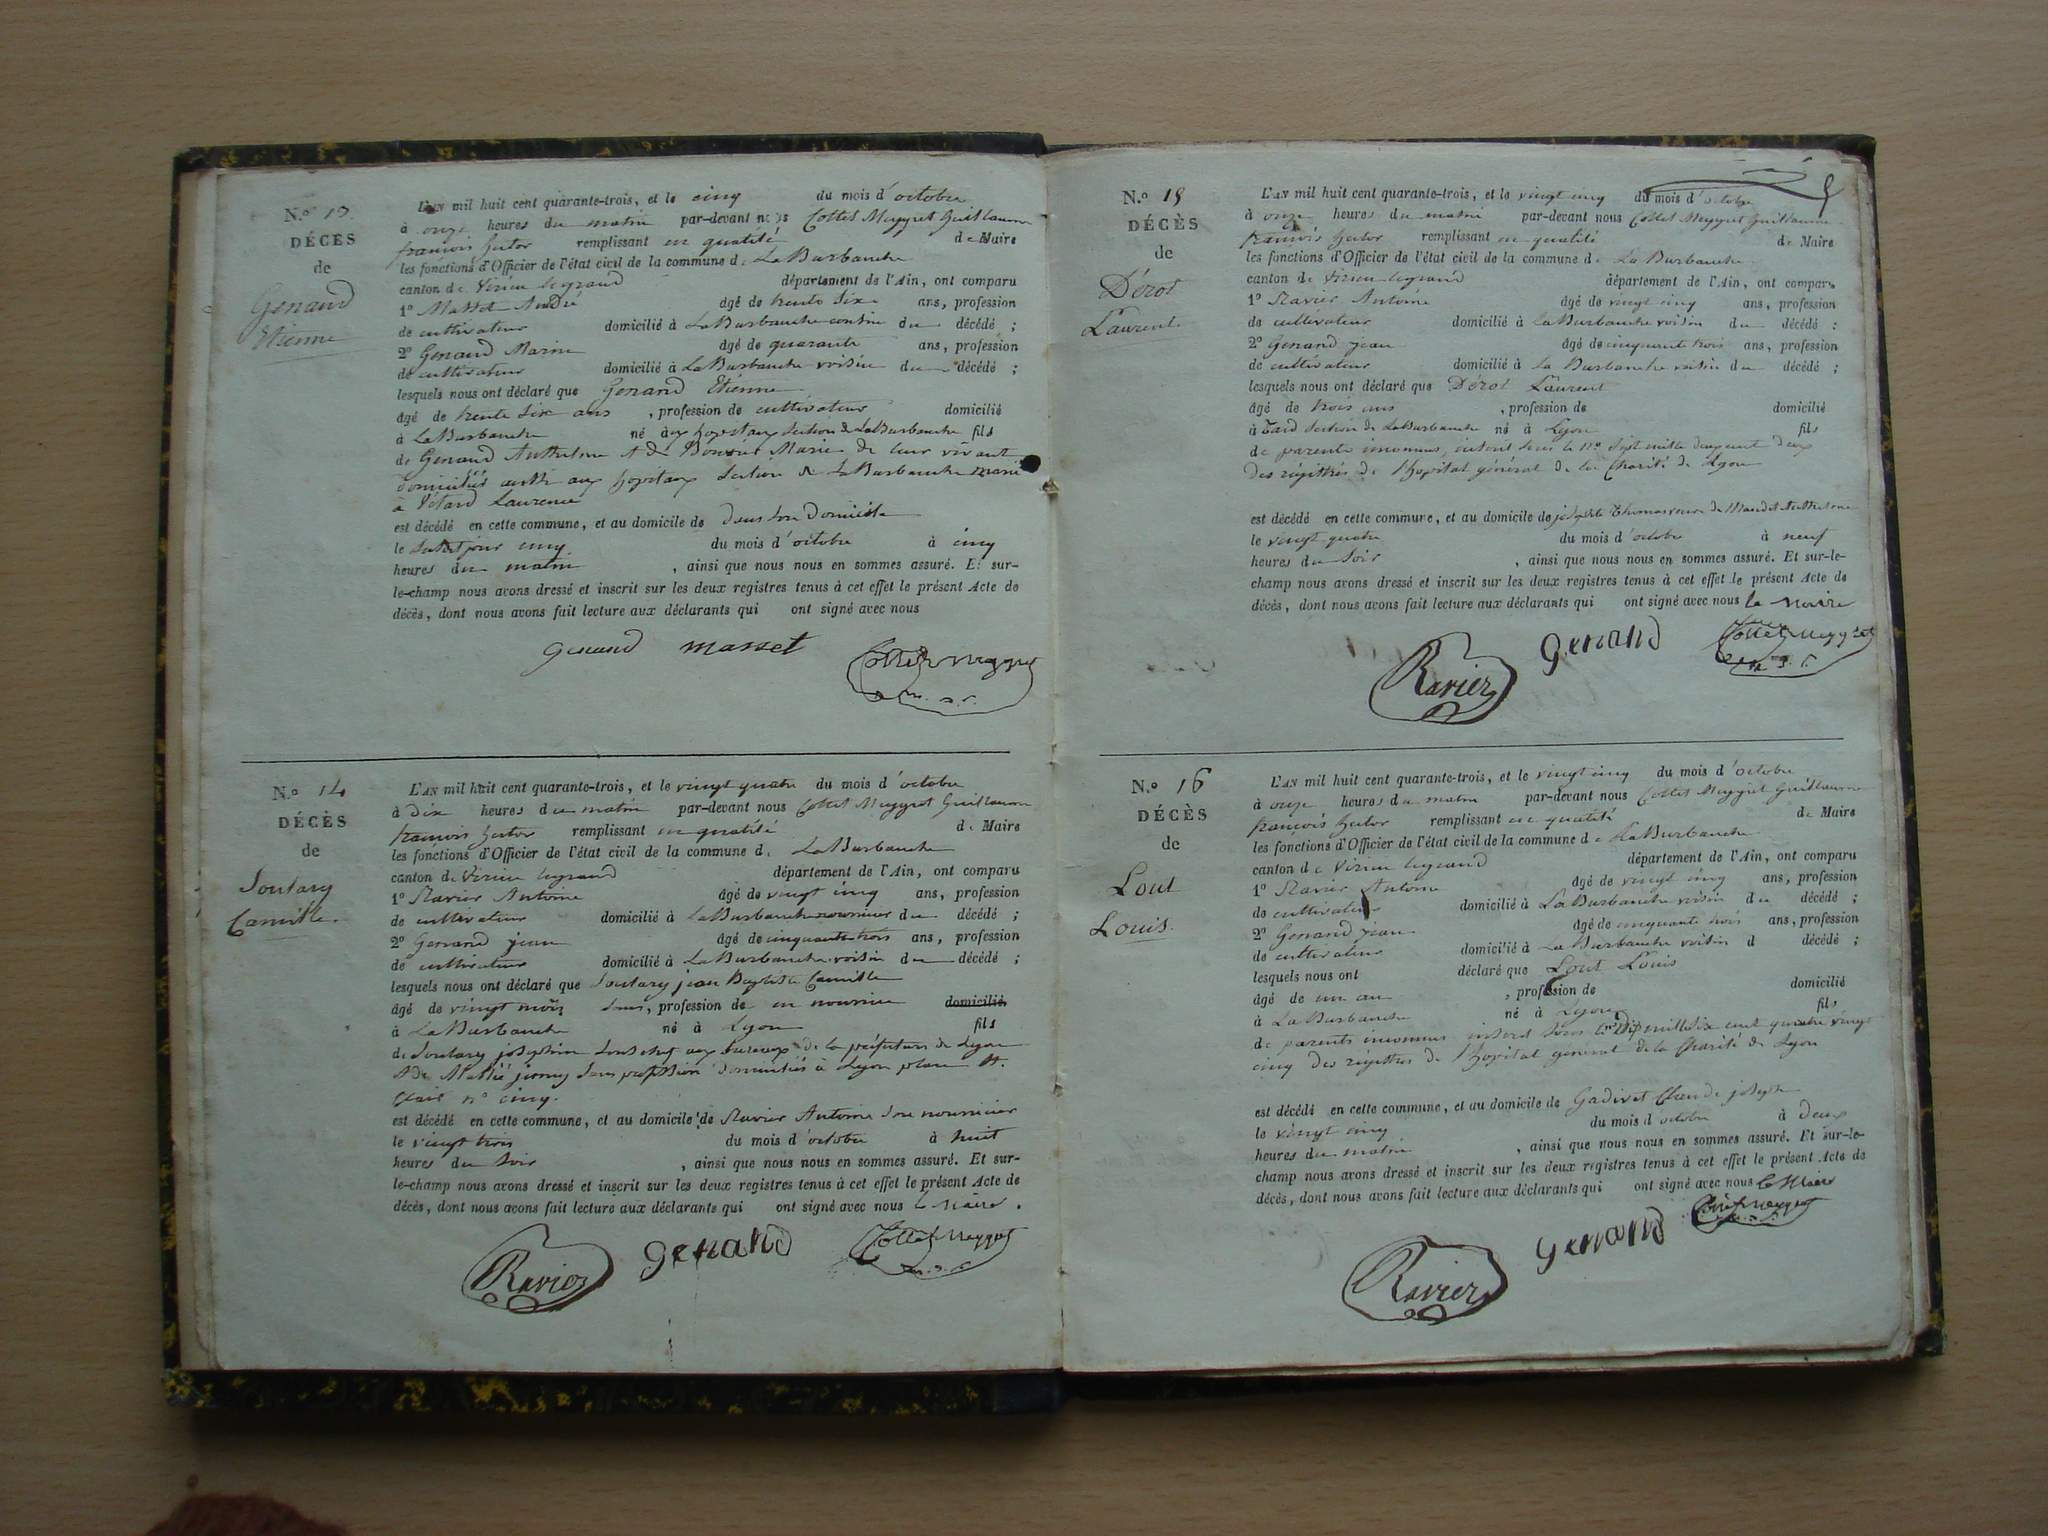 N.º 13
DÉCÈS
de
Genand
Etienne
L'AN mil huit cent quarante-trois, et le cinq du mois d'octobre
à onze heures du matin par-devant nous Collet Meygret Guillaume
françois hector remplissant en qualité de Maire
les fonctions d'Officier de l'état civil de la commune d. La Burbanche
canton de Virieu legrand département de l'Ain, ont comparu
1º Masset André âgé de trente six ans, profession
de cultivateur domicilié à La Burbanche cousin du décédé ;
2º Genand Marin âgé de quarante ans, profession
de cultivateur domicilié à La Burbanche voisin du décédé ;
lesquels nous ont déclaré que Genand Etienne
âgé de trente six ans , profession de cultivateur domicilié
à La Burbanche né aux hopitaux section de La Burbanche fils
de Genand Anthelme et de Marie de leur vivant
domiciliés aussi aux hopitaux section de La Burbanche marié
à Laurence
est décédé en cette commune, et au domicile de dans son domicile
le jour cinq du mois d'octobre à cinq
heures du matin , ainsi que nous nous en sommes assuré. Et sur-
le-champ nous avons dressé et inscrit sur les deux registres tenus à cet effet le présent Acte de
décès, dont nous avons fait lecture aux déclarants qui ont signé avec nous
genand masset Collet Meygret
N.º 14
DÉCÈS
de
Soulary
Camille.
L'AN mil huit cent quarante-trois, et le vingt quatre du mois d'octobre
à dix heures du matin par-devant nous Collet Meygret Guillaume
françois hector remplissant en qualité de Maire
les fonctions d'Officier de l'état civil de la commune d. La Burbanche
canton de Virieu legrand département de l'Ain, ont comparu
1º Ravier Antoine âgé de vingt cinq ans, profession
de cultivateur domicilié à La Burbanche nourricier du décédé ;
2º Genand jean âgé de cinquante trois ans, profession
de cultivateur domicilié à La Burbanche voisin du décédé ;
lesquels nous ont déclaré que Soulary jean Baptiste Camille
âgé de vingt mois sans, profession de en nourrice domicilié
à La Burbanche né à Lyon fils
de Soulary josephin sous chef aux bureaux de la préfecture de Lyon
et de jenny sans profession domiciliés à Lyon place St.
Clair nº cinq.
est décédé en cette commune, et au domicile de Ravier Antoine son nourricier
le vingt trois du mois d'octobre à huit
heures du soir , ainsi que nous nous en sommes assuré. Et sur-
le-champ nous avons dressé et inscrit sur les deux registres tenus à cet effet le présent Acte de
décès, dont nous avons fait lecture aux déclarants qui ont signé avec nous le Maire.
Ravier genand Collet Meygret
N.º 15
DÉCÈS
de
Dérot
Laurent.
L'AN mil huit cent quarante-trois, et le vingt cinq du mois d'octobre
à onze heures du matin par-devant nous Collet Meygret Guillaume
françois hector remplissant en qualité de Maire
les fonctions d'Officier de l'état civil de la commune d. La Burbanche
canton de Virieu legrand département de l'Ain, ont comparu
1º Ravier Antoine âgé de vingt cinq ans, profession
de cultivateur domicilié à la Burbanche voisin du décédé ;
2º Genand jean âgé de cinquante trois ans, profession
de cultivateur domicilié à la Burbanche voisin du décédé ;
lesquels nous ont déclaré que Dérot Laurent
âgé de trois ans , profession de domicilié
à section de La Burbanche né à Lyon fils
de parents inconnus, inscrit sous le nº sept mille cinquante deux
des régistres de l'hopital général de la Charité de Lyon
est décédé en cette commune, et au domicile de de Anthelme
le vingt quatre du mois d'octobre à neuf
heures du soir , ainsi que nous nous en sommes assuré. Et sur-le-
champ nous avons dressé et inscrit sur les deux registres tenus à cet effet le présent Acte de
décès, dont nous avons fait lecture aux déclarants qui ont signé avec nous le maire
Ravier genand Collet Meygret
N.º 16
DÉCÈS
de
Lout
Louis.
L'AN mil huit cent quarante-trois, et le vingt cinq du mois d'octobre
à onze heures du matin par-devant nous Collet Meygret Guillaume
françois hector remplissant en qualité de Maire
les fonctions d'Officier de l'état civil de la commune de La Burbanche
canton de Virieu legrand département de l'Ain, ont comparu
1º Ravier Antoine âgé de vingt cinq ans, profession
de cultivateur domicilié à La Burbanche voisin du décédé ;
2º Genand jean âgé de cinquante trois ans, profession
de cultivateur domicilié à La Burbanche voisin d décédé ;
lesquels nous ont déclaré que Lout Louis
âgé de un an , profession de domicilié
à La Burbanche né à Lyon fils
de parents inconnus inscrit sous le nº mille six cent quatre vingt
cinq des régistres de l'hopital général de la Charité de Lyon
est décédé en cette commune, et au domicile de Gadivet Claude joseph
le vingt cinq du mois d'octobre à deux
heures du matin , ainsi que nous nous en sommes assuré. Et sur-le-
champ nous avons dressé et inscrit sur les deux registres tenus à cet effet le présent Acte de
décès, dont nous avons fait lecture aux déclarants qui ont signé avec nous le Maire
Ravier genand Collet Meygret